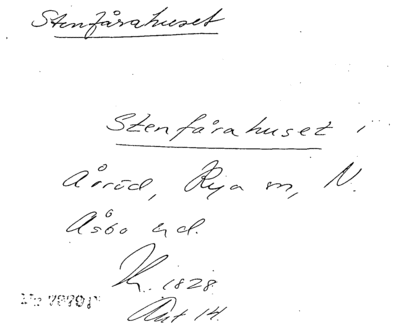 Stenfårahuset
Stenfårahuset i
Årröd, Rya sn, N.
Åsbo hd.
K. 1828
Akt 14.